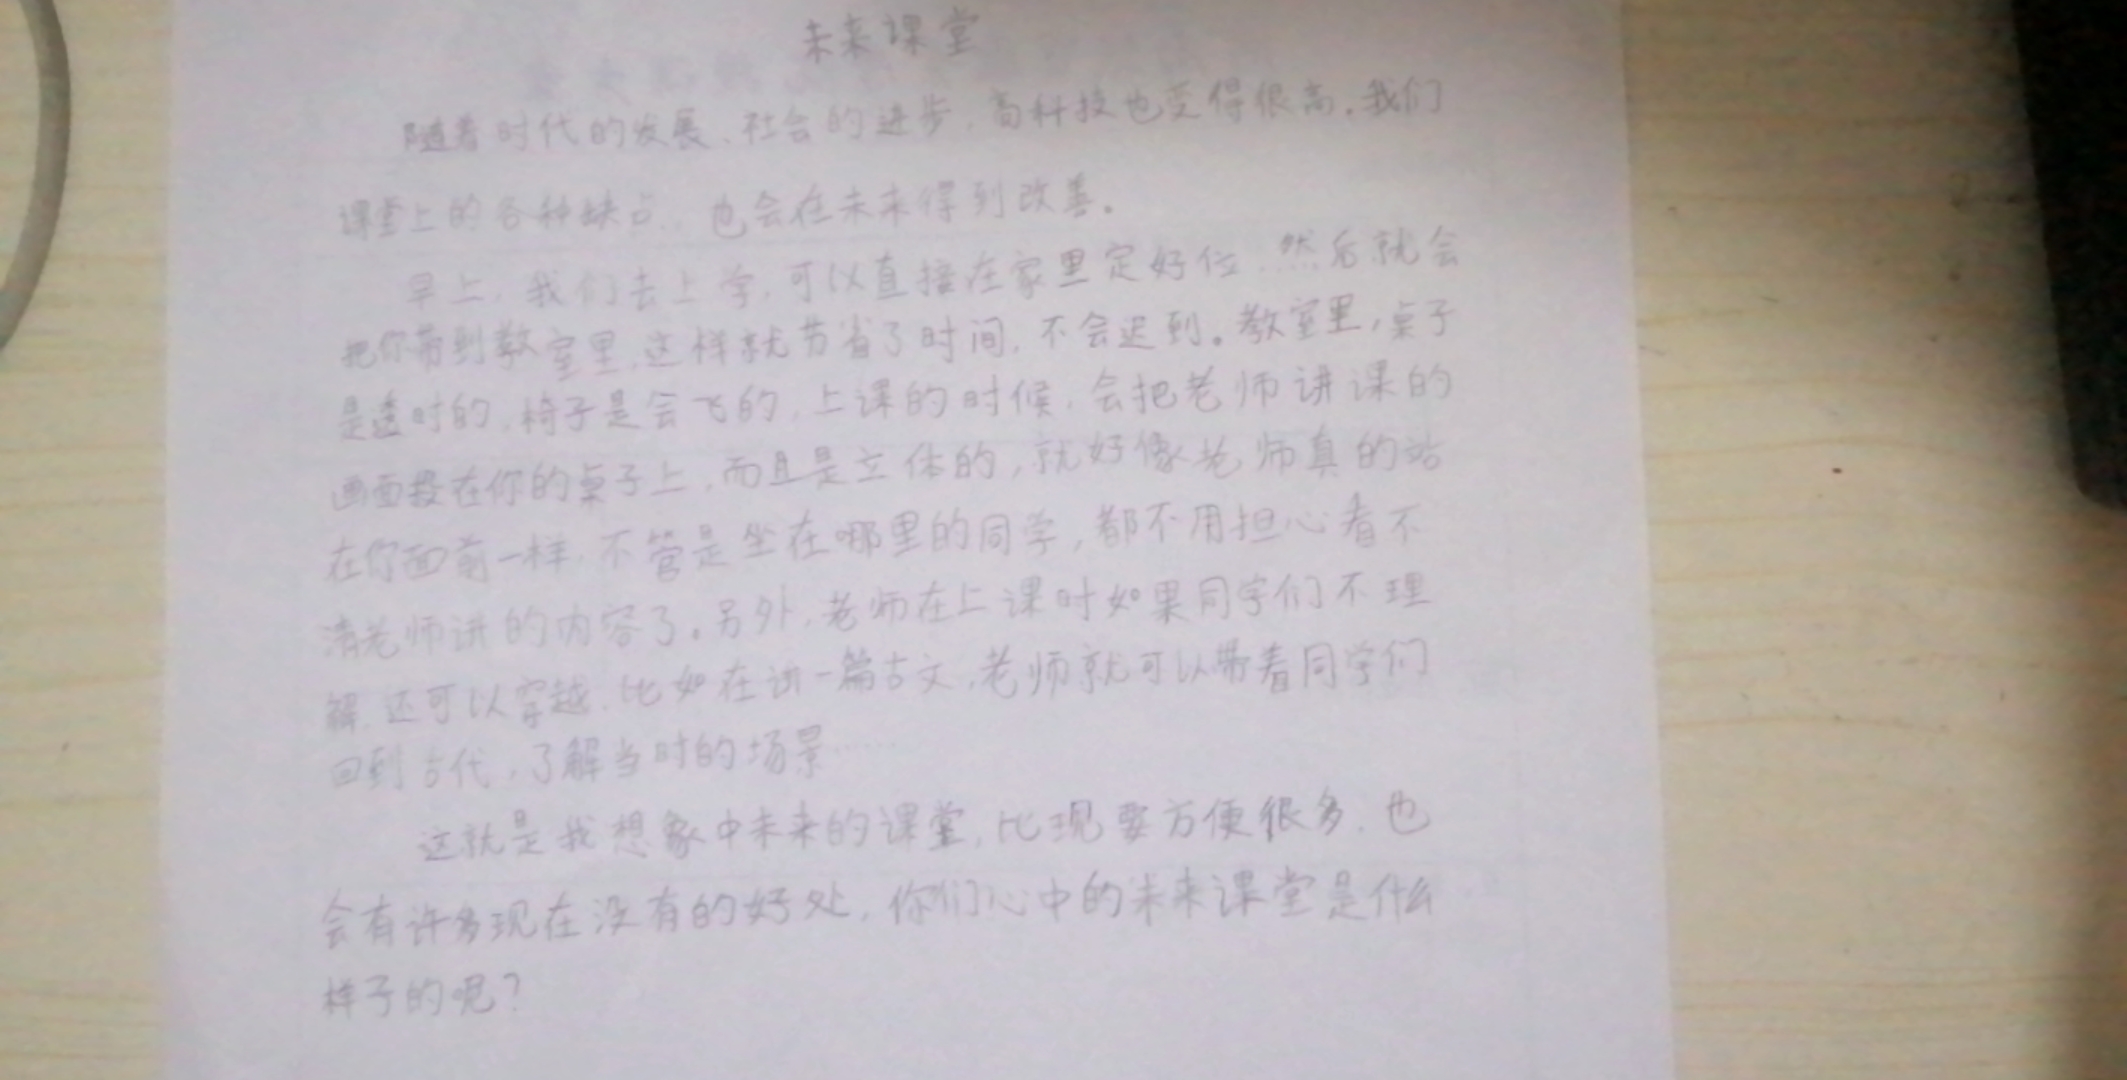 未来课堂
随着时代的发展、社会的进步，高科技也变得很高。我们
课堂上的各种缺点，也会在未来得到改善。
早上，我们去上学，可以直接在家里定好位，然后就会
把你带到教室里，这样就节省了时间，不会迟到。教室里，桌子
是透时的，椅子是会飞的，上课的时候，会把老师讲课的
画面投在你的桌子上，而且是立体的，就好像老师真的站
在你面前一样，不管是坐在哪里的同学，都不用担心看不
清老师讲的内容了。另外，老师在上课时如果同学们不理
解，还可以穿越，比如在讲一篇古文，老师就可以带着同学们
回到古代，了解当时的场景……
这就是我想象中未来的课堂，比现要方便很多，也
会有许多现在没有的好处，你们心中的未来课堂是什么
样子的呢？